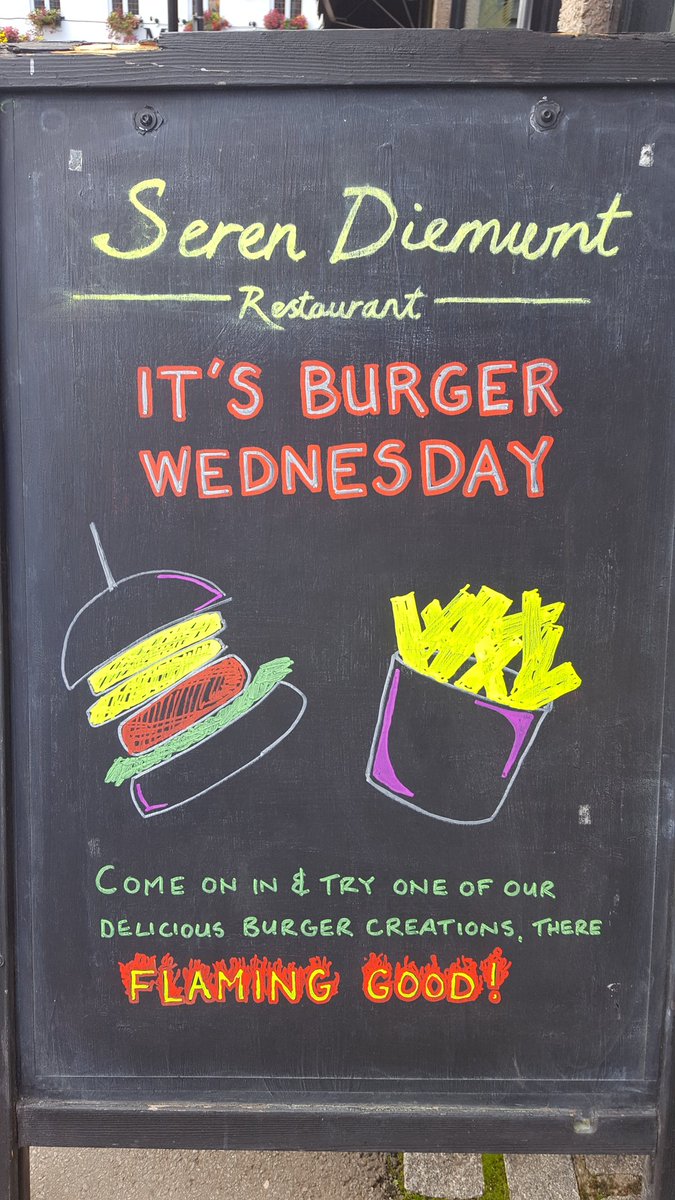 Seren Diemwnt
Restaurant
IT'S BURGER
WEDNESDAY
COME ON IN & TRY ONE OF OUR
DELICIOUS BURGER CREATIONS, THERE
FLAMING GOOD!